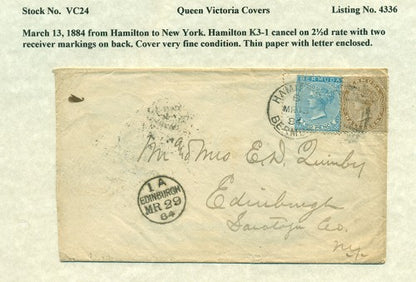 Stock No. VC24 Queen Victoria Covers Listing No. 4336
March 13, 1884 from Hamilton to New York. Hamilton K3-1 cancel on 2½d rate with two
receiver markings on back. Cover very fine condition. Thin paper with letter enclosed.
BERMUDA
HAM
MR
84
BERM
Mr & Mrs E. D. Quimby
Edinburgh
Saratoga Co.
NY.
1 A
EDINBURGH
MR 29
84